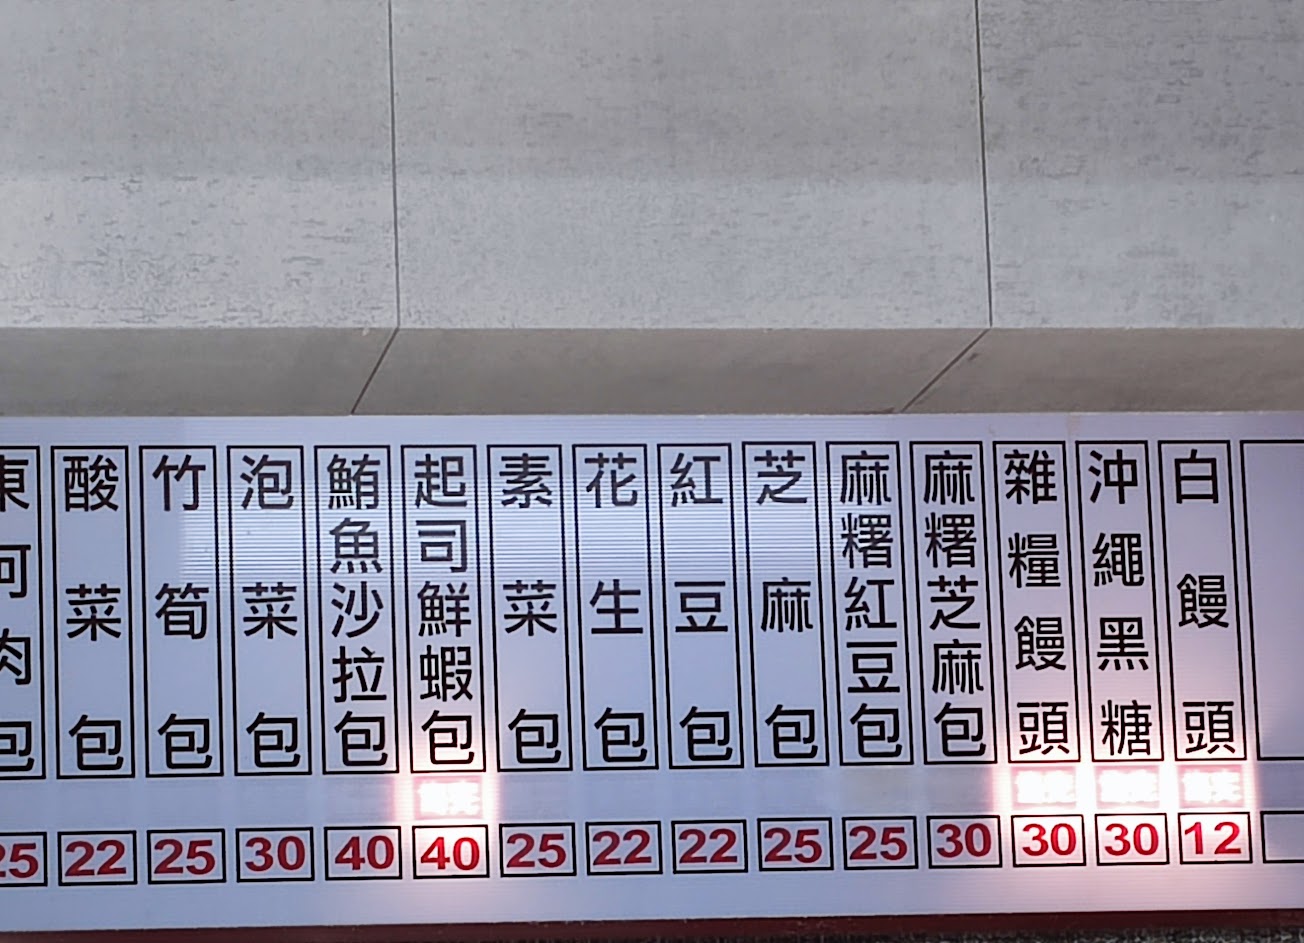 東河肉包
25
酸菜包
22
竹筍包
25
泡菜包
30
鮪魚沙拉包
40
起司鮮蝦包
售完
40
素菜包
25
花生包
22
紅豆包
22
芝麻包
25
麻糬紅豆包
25
麻糬芝麻包
30
雜糧饅頭
售完
30
沖繩黑糖
售完
30
白饅頭
售完
12